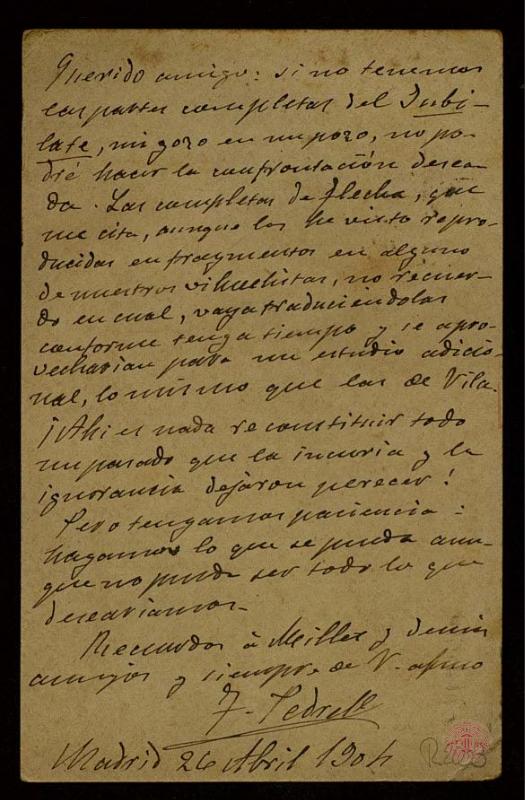 Querido amigo: si no tenemos
las partes completas del Jubi-
late, mi gozo en un pozo, no po-
dré hacer la confrontación desea-
da. Las completas de Flecha, que
me cita, aunque las he visto repro-
ducidas en fragmentos en alguno
de nuestros vihuelistas, no recuer-
do en cual, vaya traduciendolas
conforme tenga tiempo y se apro-
vecharian para un estudio adicio-
nal, lo mismo que las de Vila.
¡Ahi es nada reconstituir todo
un pasado que la incuria y la
ignorancia dejaron perecer!
Pero tengamos paciencia:
hagamos lo que se pueda aun-
que no pueda ser todo lo que
deseariamos.
Recuerdos á Millet y demás
amigos y siempre de V. afmo
F. Pedrell
Madrid 26 Abril 1904